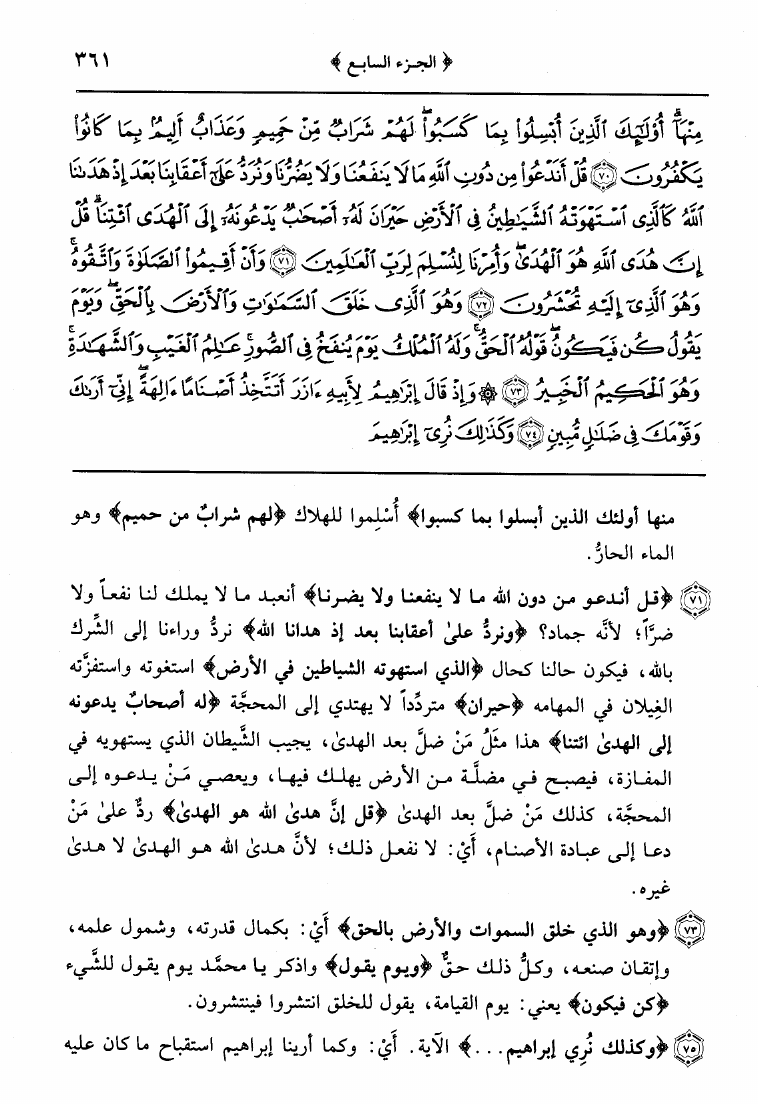 ﴿ الجزء السابع ﴾ ٣٦١
مِنْهَآ أُوْلَٰٓئِكَ ٱلَّذِينَ أُبْسِلُوا۟ بِمَا كَسَبُوا۟ لَهُمْ شَرَابٌ مِّنْ حَمِيمٍ وَعَذَابٌ أَلِيمٌۢ بِمَا كَانُوا۟
يَكْفُرُونَ ﴿٧٠﴾ قُلْ أَنَدْعُوا۟ مِن دُونِ ٱللَّهِ مَا لَا يَنفَعُنَا وَلَا يَضُرُّنَا وَنُرَدُّ عَلَىٰٓ أَعْقَابِنَا بَعْدَ إِذْ هَدَىٰنَا
ٱللَّهُ كَٱلَّذِى ٱسْتَهْوَتْهُ ٱلشَّيَٰطِينُ فِى ٱلْأَرْضِ حَيْرَانَ لَهُۥٓ أَصْحَٰبٌ يَدْعُونَهُۥٓ إِلَى ٱلْهُدَى ٱئْتِنَا قُلْ
إِنَّ هُدَى ٱللَّهِ هُوَ ٱلْهُدَىٰ وَأُمِرْنَا لِنُسْلِمَ لِرَبِّ ٱلْعَٰلَمِينَ ﴿٧١﴾ وَأَنْ أَقِيمُوا۟ ٱلصَّلَوٰةَ وَٱتَّقُوهُ
وَهُوَ ٱلَّذِىٓ إِلَيْهِ تُحْشَرُونَ ﴿٧٢﴾ وَهُوَ ٱلَّذِى خَلَقَ ٱلسَّمَٰوَٰتِ وَٱلْأَرْضَ بِٱلْحَقِّ وَيَوْمَ
يَقُولُ كُن فَيَكُونُ قَوْلُهُ ٱلْحَقُّ وَلَهُ ٱلْمُلْكُ يَوْمَ يُنفَخُ فِى ٱلصُّورِ عَٰلِمُ ٱلْغَيْبِ وَٱلشَّهَٰدَةِ
وَهُوَ ٱلْحَكِيمُ ٱلْخَبِيرُ ﴿٧٣﴾ ۞ وَإِذْ قَالَ إِبْرَٰهِيمُ لِأَبِيهِ ءَازَرَ أَتَتَّخِذُ أَصْنَامًا ءَالِهَةً إِنِّىٓ أَرَىٰكَ
وَقَوْمَكَ فِى ضَلَٰلٍ مُّبِينٍ ﴿٧٤﴾ وَكَذَٰلِكَ نُرِىٓ إِبْرَٰهِيمَ
منها أولئك الذين أبسلوا بما كسبوا﴾ أُسْلِموا للهلاك ﴿لهم شرابٌ من حميم﴾ وهو
الماء الحارُّ.
﴿٧١﴾ ﴿قل أندعو من دون الله ما لا ينفعنا ولا يضرنا﴾ أنعبد ما لا يملك لنا نفعاً ولا
ضرَّاً؛ لأنَّه جماد؟ ﴿ونردُّ علىٰ أعقابنا بعد إذ هدانا الله﴾ نردُّ وراءنا إلى الشِّرك
بالله، فيكون حالنا كحال ﴿الذي استهوته الشياطين في الأرض﴾ استغوته واستفزَّته
الغِيلان في المهامه ﴿حيران﴾ متردِّداً لا يهتدي إلى المحجَّة ﴿له أصحابٌ يدعونه
إلى الهدىٰ ائتنا﴾ هذا مثلُ مَنْ ضلَّ بعد الهدىٰ، يجيب الشَّيطان الذي يستهويه في
المفازة، فيصبح في مضلَّة من الأرض يهلك فيها، ويعصي مَنْ يدعوه إلى
المحجَّة، كذلك مَنْ ضلَّ بعد الهدىٰ ﴿قل إنَّ هدىٰ الله هو الهدىٰ﴾ ردٌّ علىٰ مَنْ
دعا إلى عبادة الأصنام، أَيْ: لا نفعل ذلك؛ لأنَّ هدىٰ الله هو الهدىٰ لا هدىٰ
غيره.
﴿٧٣﴾ ﴿وهو الذي خلق السموات والأرض بالحق﴾ أَيْ: بكمال قدرته، وشمول علمه،
وإتقان صنعه، وكلُّ ذلك حقٌّ ﴿ويوم يقول﴾ واذكر يا محمَّد يوم يقول للشَّيء
﴿كن فيكون﴾ يعني: يوم القيامة، يقول للخلق انتشروا فينتشرون.
﴿٧٥﴾ ﴿وكذلك نُرِي إبراهيم...﴾ الآية. أَيْ: وكما أرينا إبراهيم استقباح ما كان عليه